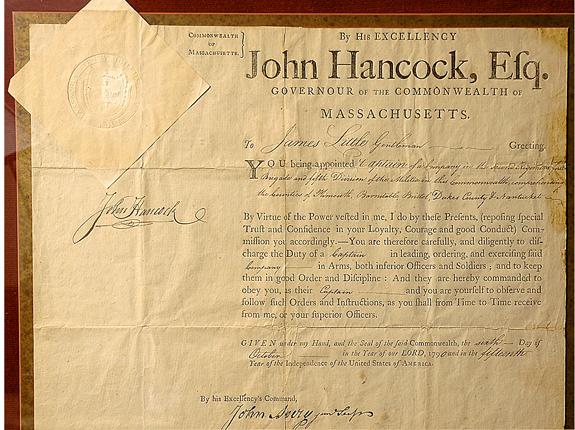 COMMONWEALTH
OF
MASSACHUSETTS.
By HIS EXCELLENCY
John Hancock, Eſq.
GOVERNOUR OF THE COMMONWEALTH OF
MASSACHUSETTS.
To James Little Gentleman Greeting.
YOU being appointed Captain of a Company in the Second Regiment, first
Brigade and fifth Division of the Militia in this Commonwealth, comprehending
the Counties of Plymouth, Barnstable Bristol, Dukes County & Nantucket
John Hancock
By Virtue of the Power veſted in me, I do by theſe Preſents, (repoſing ſpecial
Truſt and Confidence in your Loyalty, Courage and good Conduct) Com-
miſſion you accordingly.—You are therefore carefully, and diligently to diſ-
charge the Duty of a Captain in leading, ordering, and exerciſing ſaid
Company in Arms, both inferior Officers and Soldiers; and to keep
them in good Order and Diſcipline: And they are hereby commanded to
obey you, as their Captain and you are yourſelf to obſerve and
follow ſuch Orders and Inſtructions, as you ſhall from Time to Time receive
from me, or your ſuperior Officers.
GIVEN under my Hand, and the Seal of the ſaid Commonwealth, the sixth Day of
October in the Year of our LORD, 1790 and in the fifteenth
Year of the Independence of the United States of AMERICA.
By his Excellency's Command,
John Avery jun Secy